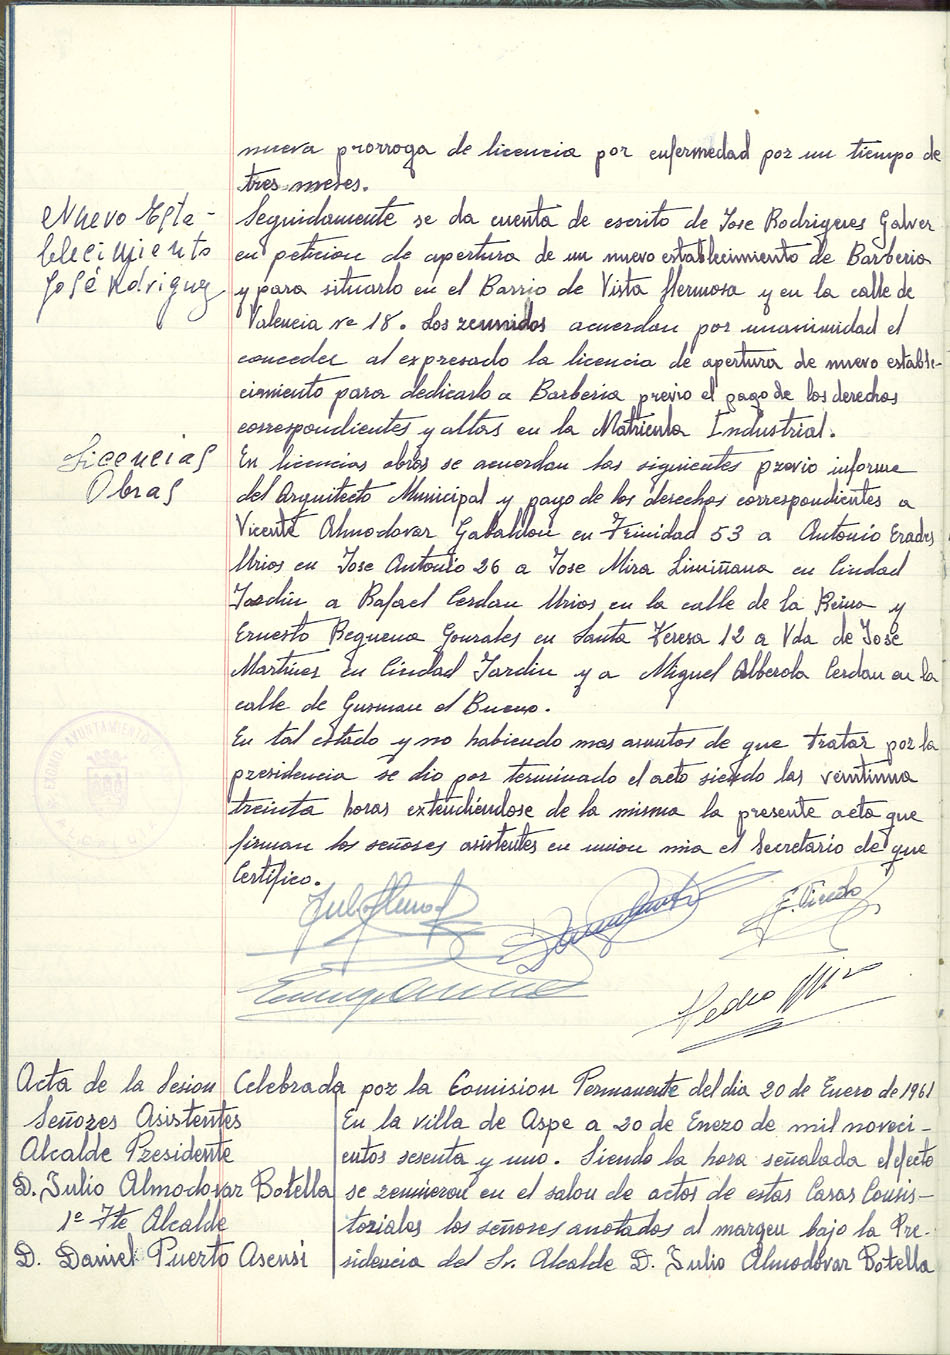 nueva prorroga de licencia por enfermedad por un tiempo de
tres meses.
Nuevo Esta-
blecimiento
José Rdriguez
Seguidamente se da cuenta de escrito de Jose Rodrigeres Galver
en peticion de apertura de un nuevo establecimiento de Barberia
y para situarlo en el Barrio de Vista Hermosa y en la calle de
Valencia nº 18. Los reunidos acuerdan por unanimidad el
conceder al expresado la licencia de apertura de nuevo estable-
cimiento para dedicarlo a Barberia previo el pago de los derechos
correspondientes y altas en la Matricula Industrial.
Licencias
Obras
En licencias obras se acuerdan las siguientes previo informe
del Arquitecto Municipal y pago de los derechos correspondientes a
Vicente Almodovar Gabaldon en Trinidad 53 a Antonio Erades
Urios en Jose Antonio 26 a Jose Mira Limiñana en Ciudad
Jardin a Rafael Cerdan Urios en la calle de la Reina y
Ernesto Requena Gonzales en Santa Teresa 12 a Vda de Jose
Martines en Ciudad Jardin y a Miguel Alberola Cerdan en la
calle de Gusman el Bueno.
En tal estado y no habiendo mas asuntos de que tratar por la
presidencia se dio por terminado el acto siendo las veintiuna
treinta horas extendiéndose de la misma la presente acta que
firman los señores asistentes en union mia el Secretario de que
Certifico.
Pedro Mira
AYUNTAMIENTO
Acta de la Sesion Celebrada por la Comision Permanente del dia 20 de Enero de 1961
Señores Asistentes
Alcalde Presidente
D. Julio Almodovar Botella
1º Tte Alcalde
D. Daniel Puerto Asensi
En la villa de Aspe a 20 de Enero de mil noveci-
entos sesenta y uno. Siendo la hora señalada el efecto
se reunieron en el salon de actos de estas Casas Consis-
toriales los señores anotados al margen bajo la Pre-
sidencia del Sr. Alcalde D. Julio Almodovar Botella